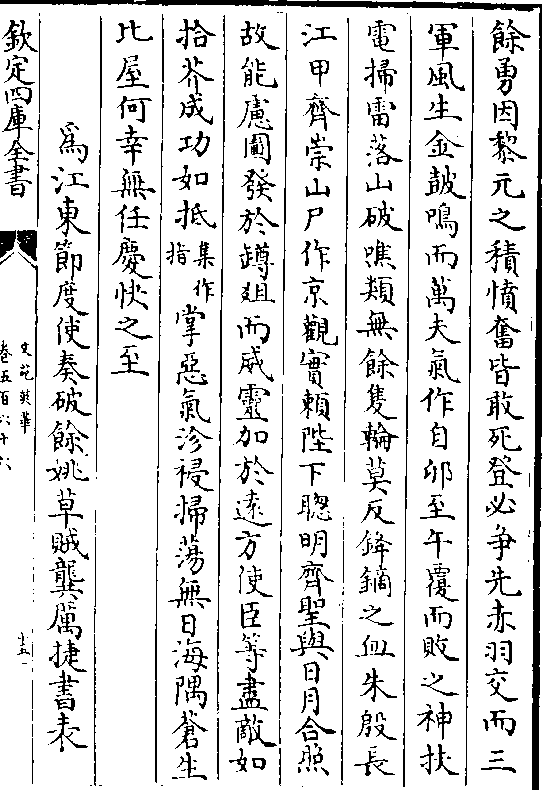 餘勇因黎元之積憤奮皆敢死登必爭先赤羽交而三
軍風生金鼓鳴而萬夫氣作自卯至午覆而敗之神扶
電掃雷落山破噍類無餘隻輪莫反鋒鏑之血朱殷長
江甲齊崇山尸作京觀實賴陛下聰明齊聖與日月合照
故能慮圖發於罇俎而威靈加於遠方使臣等盡敵如
拾芥成功如抵集作指掌惡氣沴祲掃蕩無日海隅蒼生
比屋何幸無任慶快之至
爲江東節度使奏破餘姚草賊龔厲捷書表
欽定四庫全書
文苑英華
卷五百六十六
十五